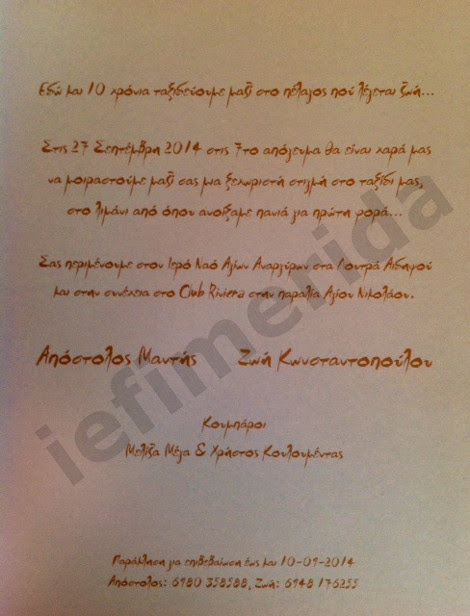 Εδώ και 10 χρόνια ταξιδεύουμε μαζί στο πέλαγος πού λέγεται ζωή...
Στις 27 Σεπτέμβρη 2014 στις 7το απόγευμα θα είναι χαρά μας
να μοιραστούμε μαζί σας μια ξεχωριστή στιγμή στο ταξίδι μας,
στο λιμάνι από όπου ανοίξαμε πανιά για πρώτη φορά...
Σας περιμένουμε στον Ιερό Ναό Αγίων Αναργύρων στα Λουτρά Αιδηψού
και στην συνέλεια στο Club Riviera στην παραλία Αγίου Νικολάου.
Απόστολος Μαντής Ζωή Κωνσταντοπούλου
Κουμπάροι
Μελίζα Μέγα & Χρήστος Κουλουμέντας
Παράκληση για επιβεβαίωση έως και 10-09-2014
Απόστολος: 6980 358588, Ζωή: 6948 176255
iefimerida